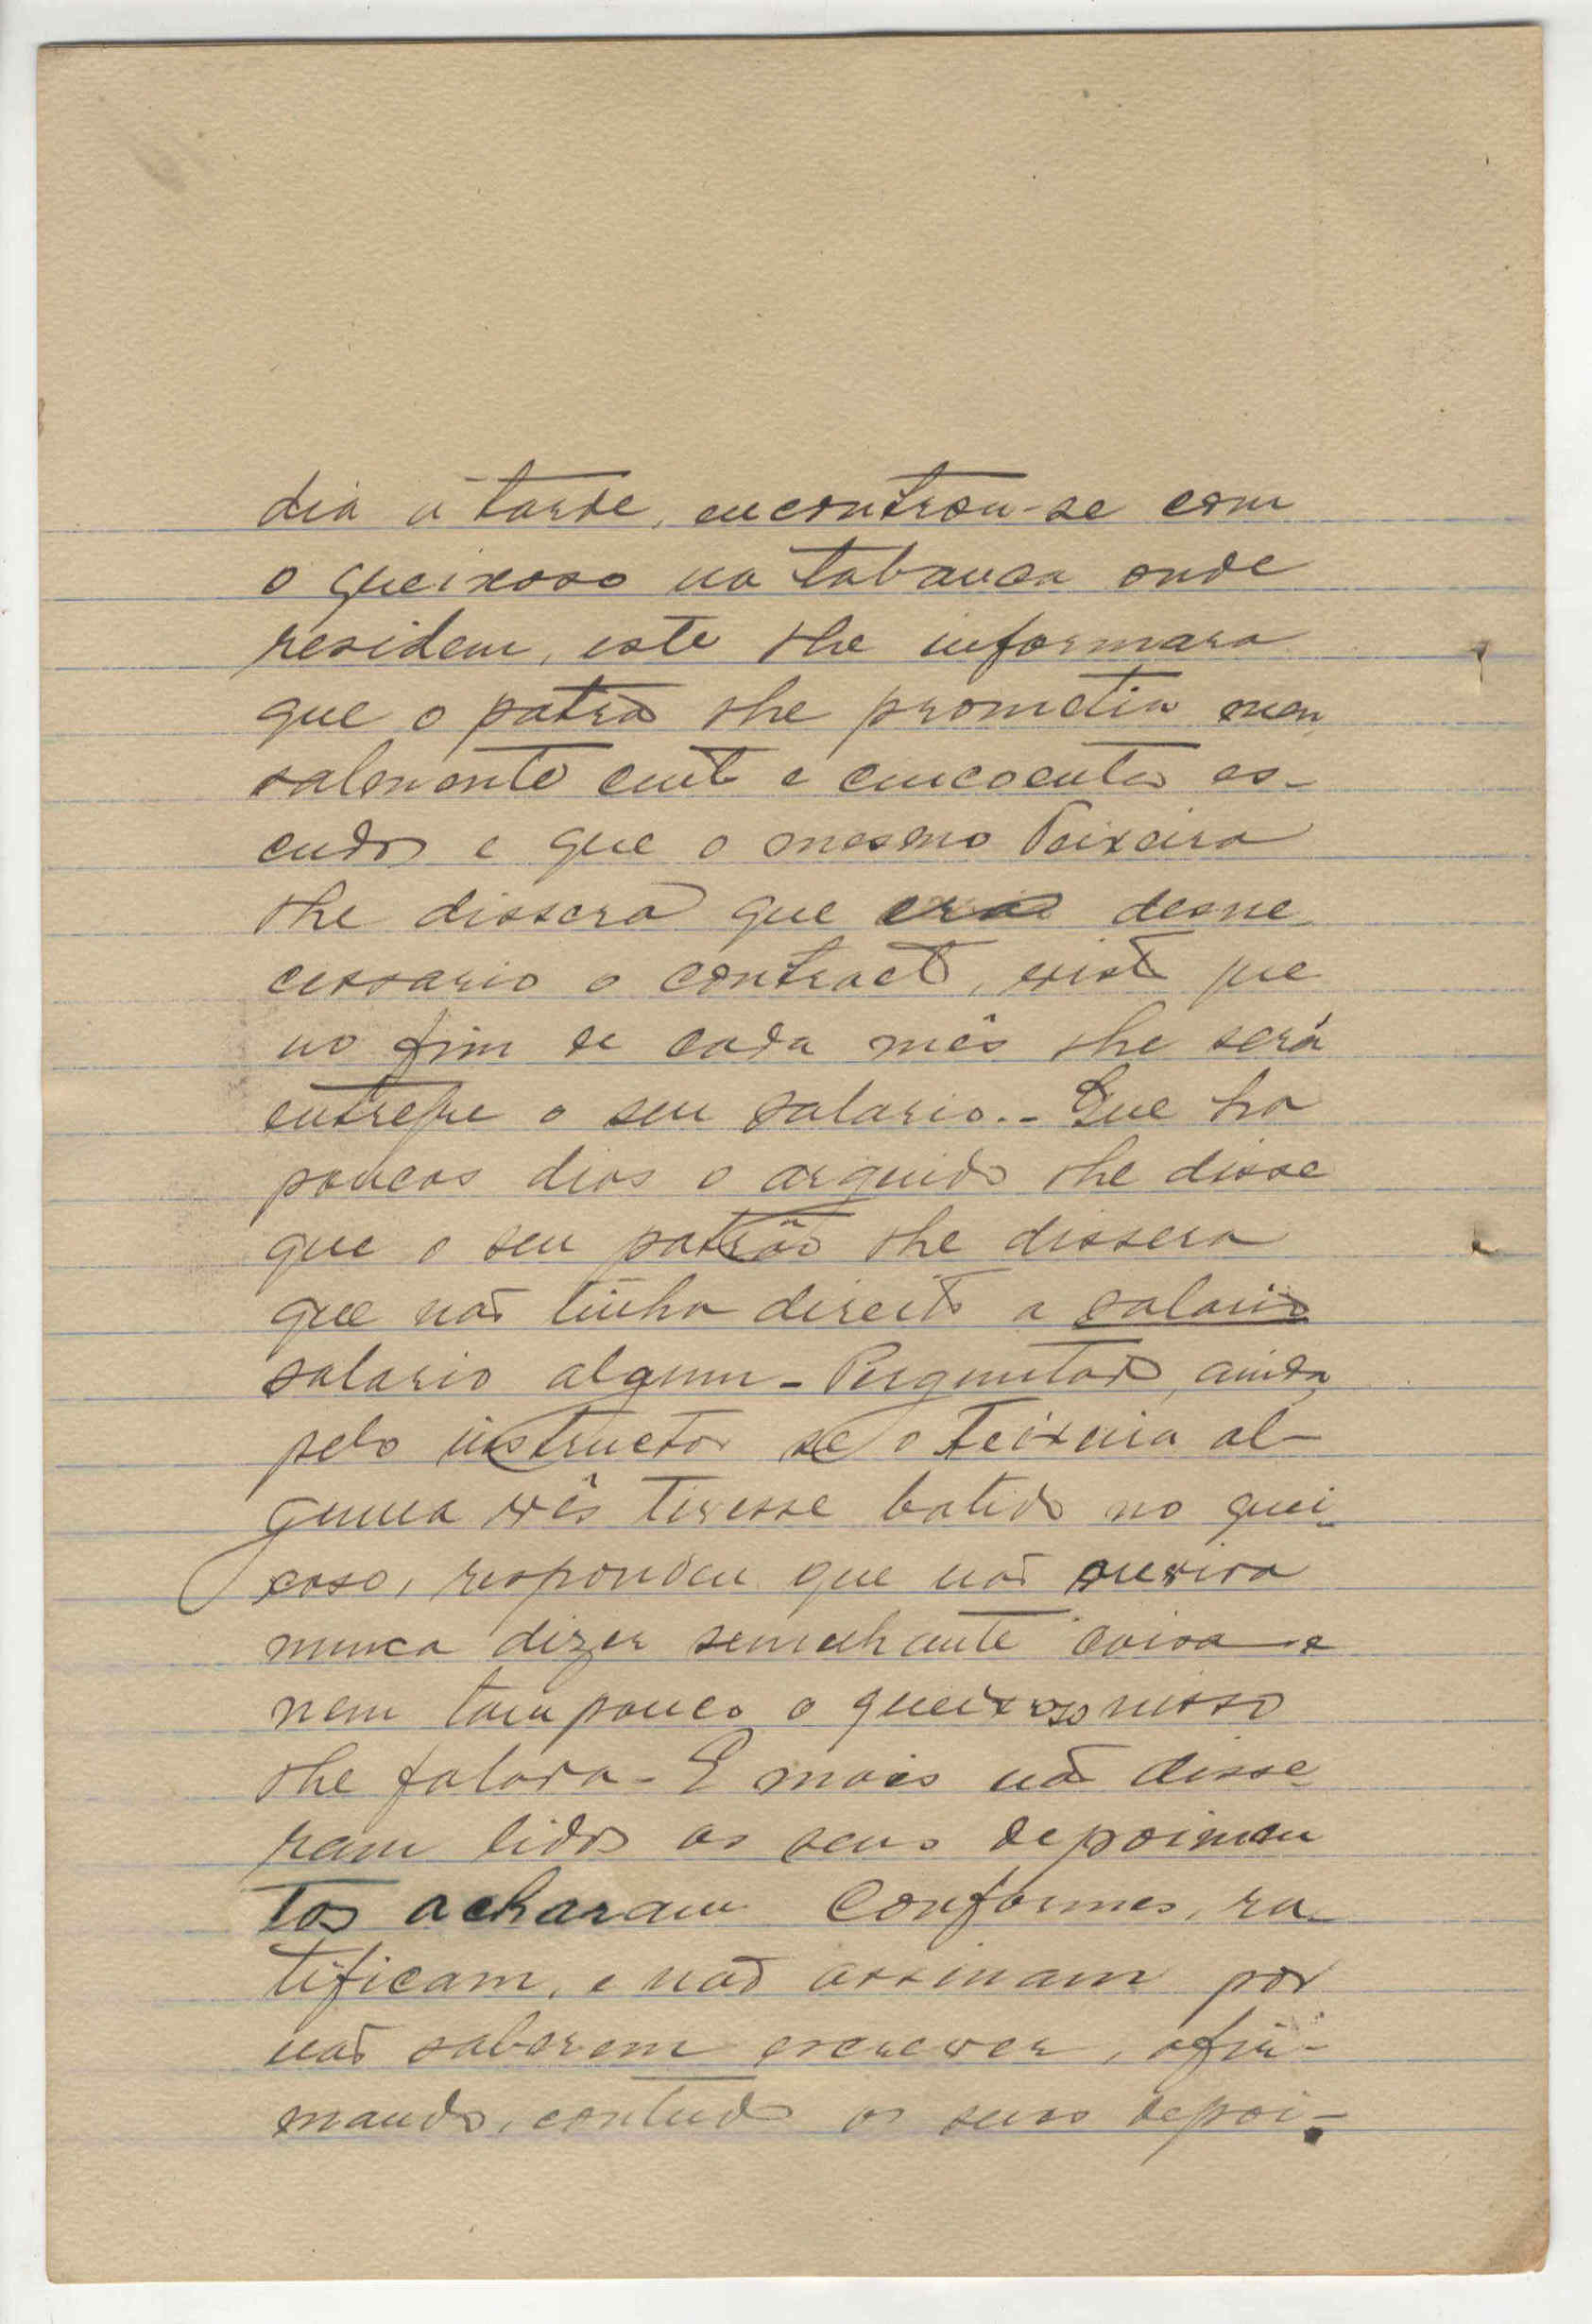 dia á tarde, encontrou-se com
o queixoso na tabanca onde
residem, este lhe informara
que o patrão lhe prometia men
salmente cento e cincoenta es-
cudos e que o mesmo Teixeira
lhe dissera que era desne
cessario o contracto, visto que
no fim de cada mês lhe será
entregue o seu salario.- Que ha
poucos dias o arguido lhe disse
que o seu patrão lhe dissera
que não tinha direito a salario
salario algum - Perguntado, ainda,
pelo instructor se o Teixeira al-
guma vês tivesse batido no quei-
xoso, respondeu que não ouvira
nunca dizer semelhante coisa e
nem tam pouco o queixoso nisso
lhe falara - E mais não disse
ram lidos os seus depoimen
tos acharam conformes, ra-
tificam, e não assinam por
não saberem escrever, afir-
mando, contudo os seus depoi-